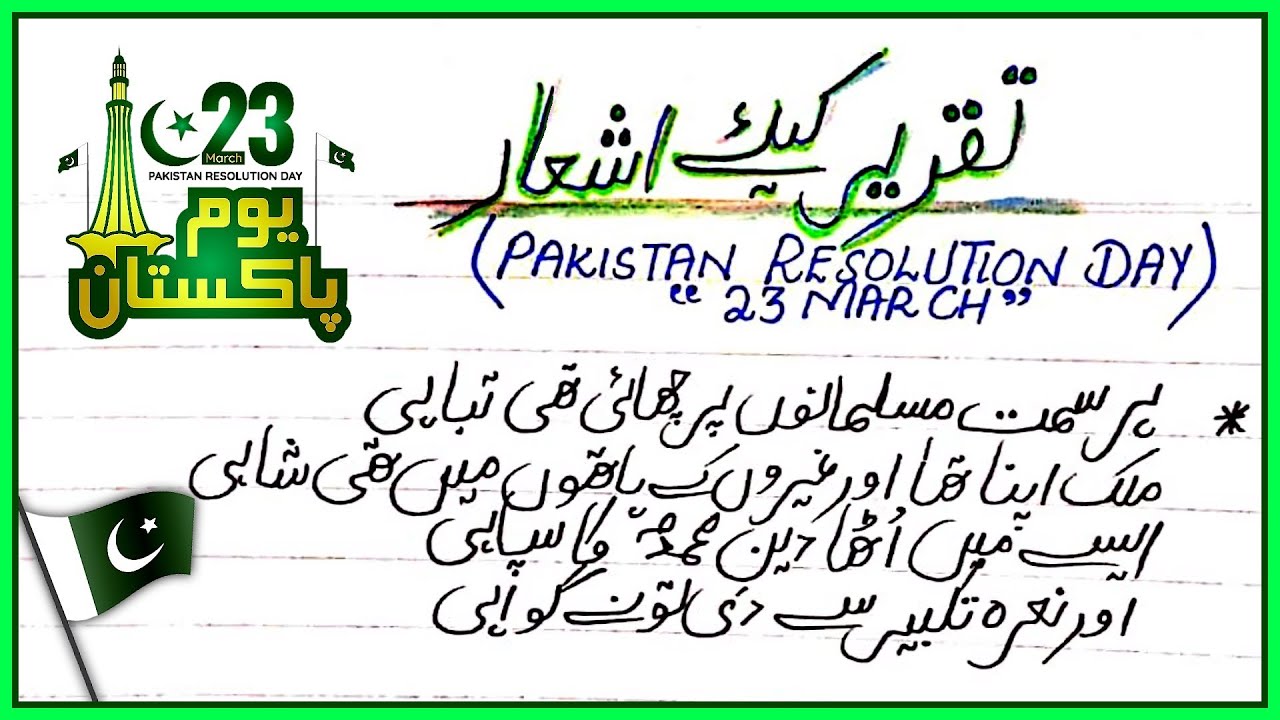 23
March
PAKISTAN RESOLUTION DAY
یوم
پاکستان
تقریر کیلئے اشعار
(PAKISTAN RESOLUTION DAY)
"23 MARCH"
* ہر سمت مسلمانوں پر چھائی تھی تباہی
ملک اپنا تھا اور غیروں کے ہاتھوں میں تھی شاہی
ایسے میں اُٹھا دین محمدؐ کا سپاہی
اور نعرہ تکبیر سے دی تو نے گواہی